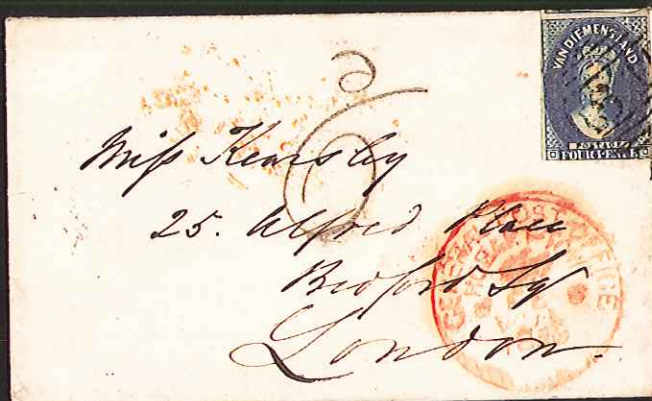 VAN DIEMENS LAND
POSTAGE
FOUR PENCE
6
Miss Kearsley
25. Alfred Place
Bedford Sq
London
GENERAL POST OFFICE